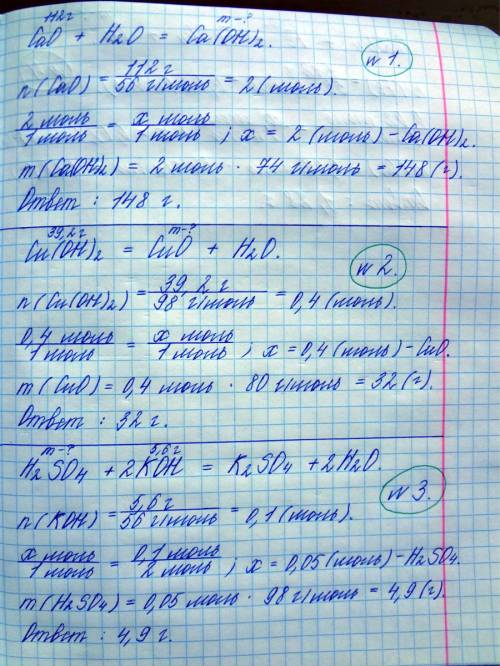 112г m-?
CaO + H2O = Ca(OH)2. №1.
n(CaO) = 112 г / 56 г/моль = 2 (моль).
2 моль / 1 моль = x моль / 1 моль ; x = 2 (моль) - Ca(OH)2.
m(Ca(OH)2) = 2 моль · 74 г/моль = 148 (г).
Ответ : 148 г.
39,2г m-?
Cu(OH)2 = CuO + H2O. №2.
n(Cu(OH)2) = 39,2 г / 98 г/моль = 0,4 (моль).
0,4 моль / 1 моль = x моль / 1 моль ; x = 0,4 (моль) - CuO.
m(CuO) = 0,4 моль · 80 г/моль = 32 (г).
Ответ : 32 г.
m-? 5,6г
H2SO4 + 2KOH = K2SO4 + 2H2O. №3.
n(KOH) = 5,6 г / 56 г/моль = 0,1 (моль).
x моль / 1 моль = 0,1 моль / 2 моль ; x = 0,05 (моль) - H2SO4.
m(H2SO4) = 0,05 моль · 98 г/моль = 4,9 (г).
Ответ : 4,9 г.